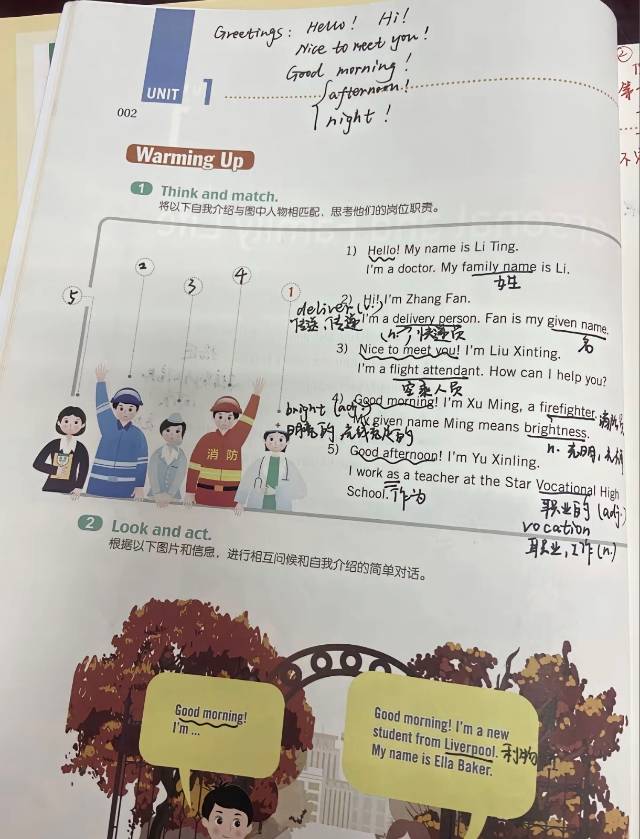 Greetings: Hello! Hi!
Nice to meet you!
Good morning!
afternoon!
night!
UNIT 1
002
Warming Up
1 Think and match.
将以下自我介绍与图中人物相匹配，思考他们的岗位职责。
1) Hello! My name is Li Ting.
I'm a doctor. My family name is Li.
姓
2) Hi! I'm Zhang Fan.
deliver (v.)
I'm a delivery person. Fan is my given name.
传送，传递
(n.) 快递员
名
3) Nice to meet you! I'm Liu Xinting.
I'm a flight attendant. How can I help you?
空乘人员
4) Good morning! I'm Xu Ming, a firefighter.
bright (adj.)
My given name Ming means brightness.
明亮的
n. 光明，
5) Good afternoon! I'm Yu Xinling.
I work as a teacher at the Star Vocational High
School.
作为
职业的 (adj.)
vocation
职业，工作 (n.)
5
2
3
4
1
消 防
2 Look and act.
根据以下图片和信息，进行相互问候和自我介绍的简单对话。
Good morning!
I'm ...
Good morning! I'm a new
student from Liverpool. 利物
My name is Ella Baker.